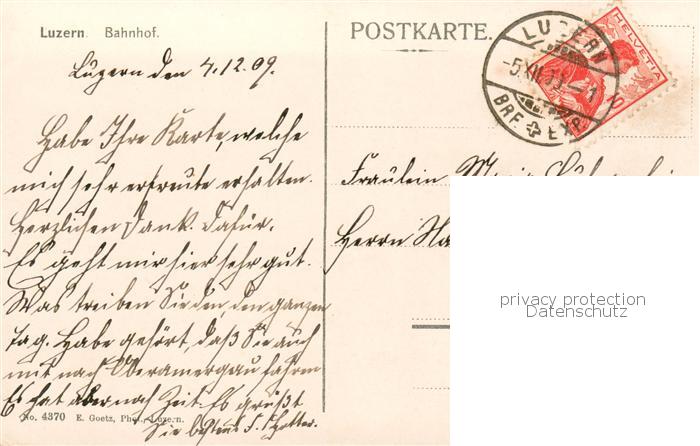 Luzern. Bahnhof.
Luzern den 4.12.09.
Habe Ihre Karte, welche
mich sehr erfreute erhalten.
Herzlichen Dank. dafür.
Es geht mir hier sehr gut.
Was treiben Sie den, den ganzen
Tag. Habe gehört, daß Sie auch
mit nach Oberamergau fahren
Es hat aber noch Zeit. Es grüßt
Sie bestens
No. 4370 E. Goetz, Phot., Luzern.
POSTKARTE.
LUZERN
BRF. EXP.
HELVETIA
10
Fräulein
Herrn
privacy protection
Datenschutz